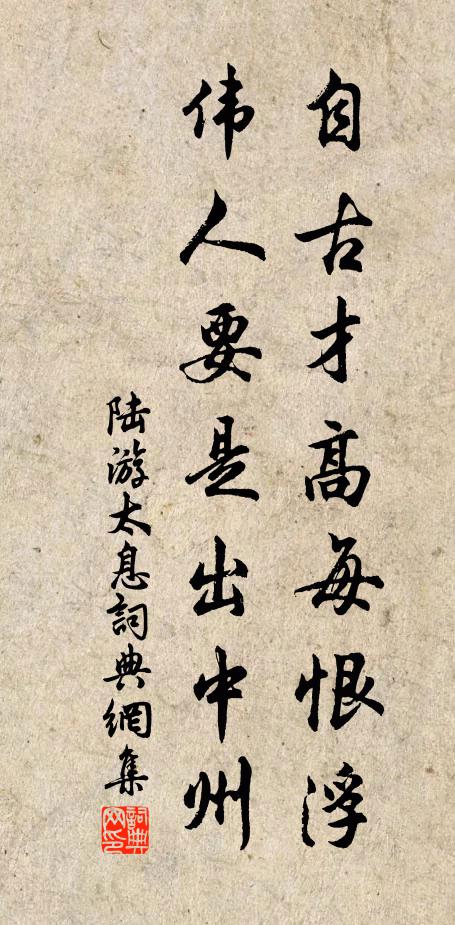 自古才高每恨浮
伟人要是出中州
陆游太息詞典網集
詞典网印